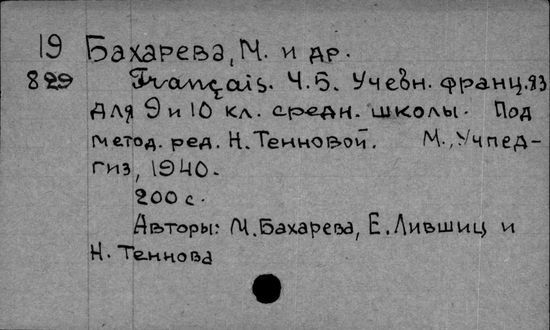 19 Бахарева, М. и др.
829 Français. Ч.5. Учебн. франц. яз
для 9 и 10 кл. средн. школы. Под
метод. ред. Н. Тенновой. М., Учпед-
гиз, 1940.
200 с.
Авторы: М. Бахарева, Е. Лившиц и
Н. Теннова